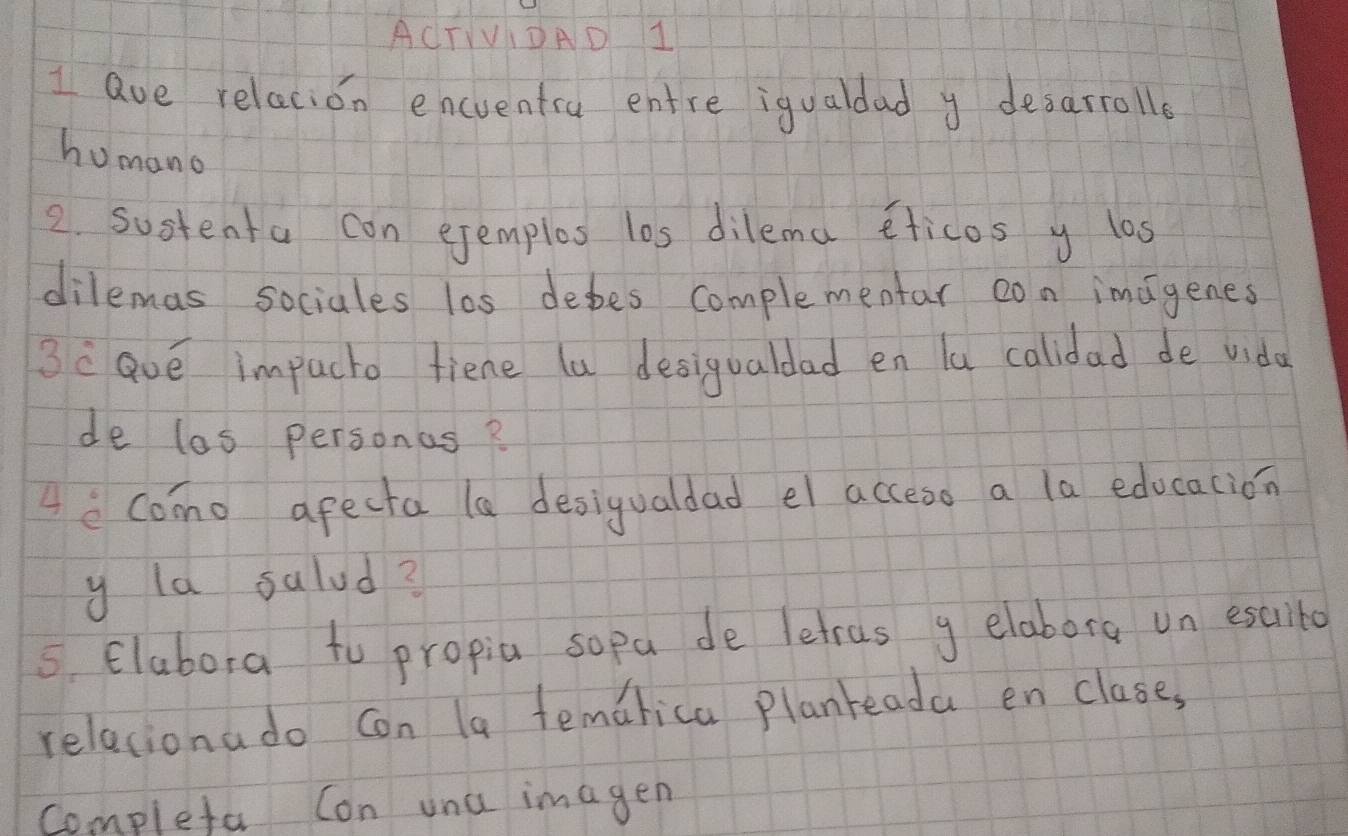 ACTIVIDAD 1
1 Que relación encuentra entre igualdad y desarrollo
humano
2. Sustenta con ejemplos los dilema éticos y los
dilemas sociales los debes complementar con imágenes
3 ¿Qué impacto tiene la desigualdad en la calidad de vida
de las personas?
4 ¿Cómo afecta la desigualdad el acceso a la educación
y la salud?
5. Elabora tu propia sopa de letras y elabora un escrito
relacionado con la temática planteada en clases
completa con una imagen